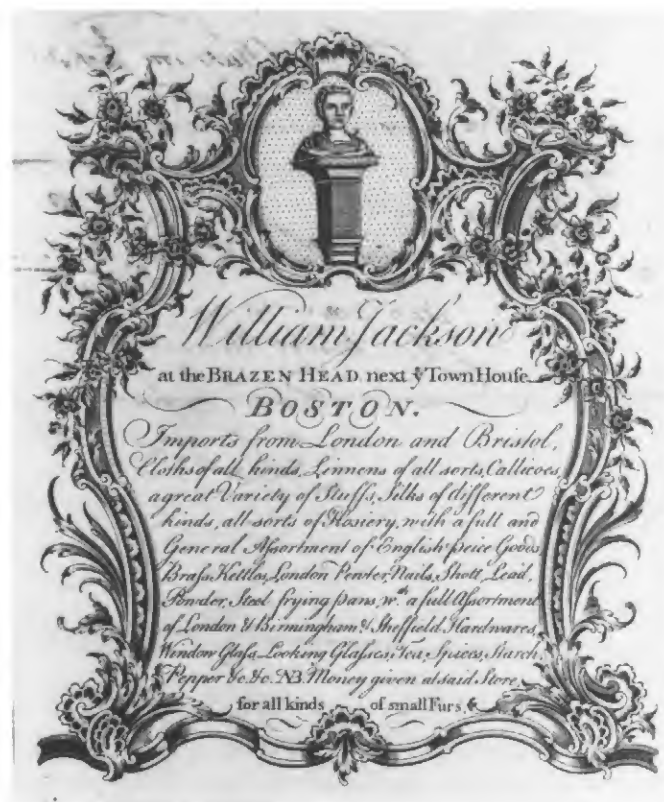 William Jackson
at the BRAZEN HEAD next yͤ Town House
BOSTON.
Imports from London and Bristol,
Cloths of all kinds, Linnens of all sorts, Callicoes,
a great Variety of Stuffs, Silks of different
kinds, all sorts of Hosiery, with a full and
General Aſsortment of English peice Goods
Braſs Kettles, London Pewter, Nails, Shott, Lead,
Powder, Steel frying pans, wᵗʰ a full Aſsortment
of London & Birmingham & Sheffield Hardwares,
Window Glaſs, Looking Glaſses, Tea, Spices, Starch,
Pepper &c. &c. NB. Money given at said Store
for all kinds of small Furs,